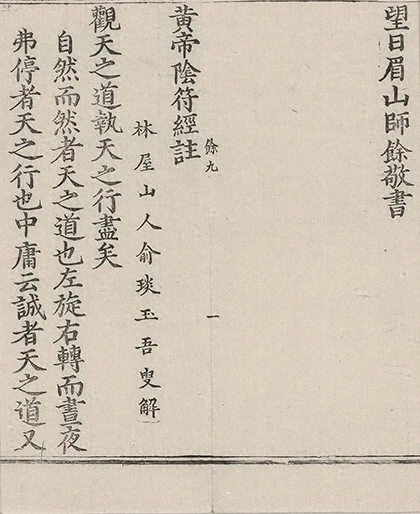 望日眉山師餘敬書
餘九
一
黃帝陰符經註
林屋山人俞琰玉吾叟解
觀天之道執天之行盡矣
自然而然者天之道也左旋右轉而晝夜
弗停者天之行也中庸云誠者天之道又